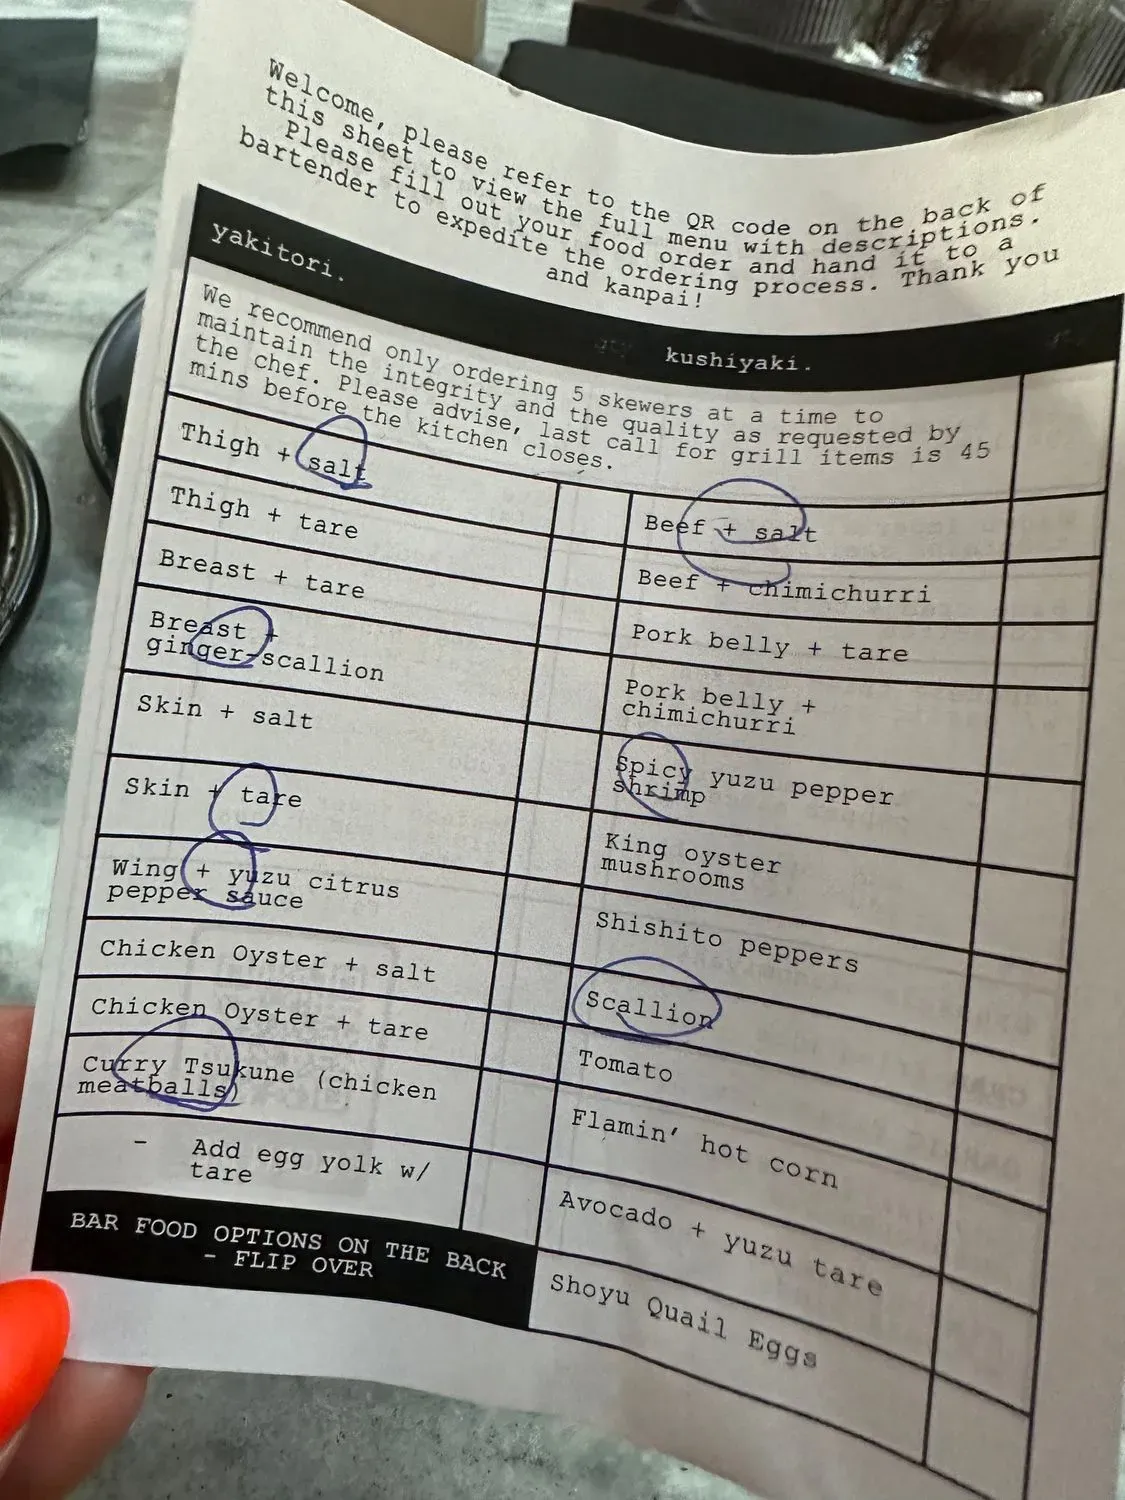 Welcome, please refer to the QR code on the back of
this sheet to view the full menu with descriptions.
Please fill out your food order and hand it to a
bartender to expedite the ordering process. Thank you
and kanpai!
yakitori.
kushiyaki.
We recommend only ordering 5 skewers at a time to
maintain the integrity and the quality as requested by
the chef. Please advise, last call for grill items is 45
mins before the kitchen closes.
Thigh + salt
Thigh + tare
Breast + tare
Breast +
ginger-scallion
Skin + salt
Skin + tare
Wing + yuzu citrus
pepper sauce
Chicken Oyster + salt
Chicken Oyster + tare
Curry Tsukune (chicken
meatballs)
- Add egg yolk w/
tare
BAR FOOD OPTIONS ON THE BACK
- FLIP OVER
Beef + salt
Beef + chimichurri
Pork belly + tare
Pork belly +
chimichurri
Spicy yuzu pepper
shrimp
King oyster
mushrooms
Shishito peppers
Scallion
Tomato
Flamin' hot corn
Avocado + yuzu tare
Shoyu Quail Eggs